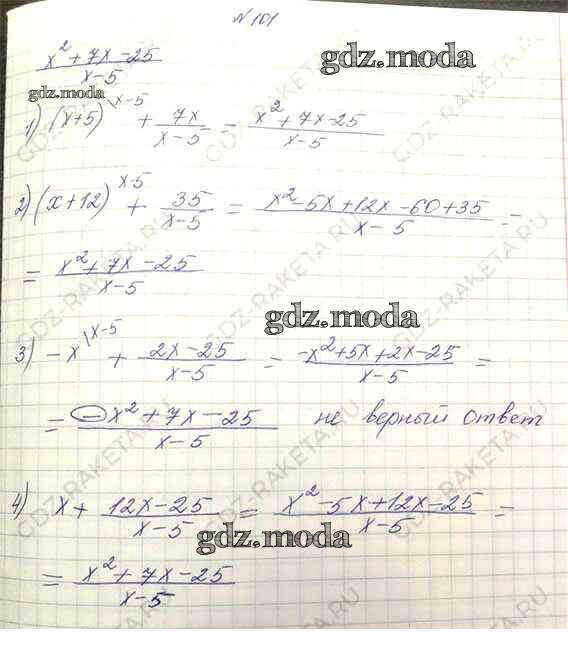 № 101
gdz.moda
x² + 7x - 25 / x - 5
gdz.moda
1) (x+5)\x-5 + 7x / x-5 = x² + 7x - 25 / x-5
2) (x+12)x-5 + 35 / x-5 = x² - 5x + 12x - 60 + 35 / x-5 =
= x² + 7x - 25 / x-5
gdz.moda
3) -x|x-5 + 2x-25 / x-5 = -x² + 5x + 2x - 25 / x-5 =
= -x² + 7x - 25 / x-5 не верный ответ
4) x + 12x-25 / x-5 = x² - 5x + 12x - 25 / x-5 =
gdz.moda
= x² + 7x - 25 / x-5
GDZ-RAKETA.RU